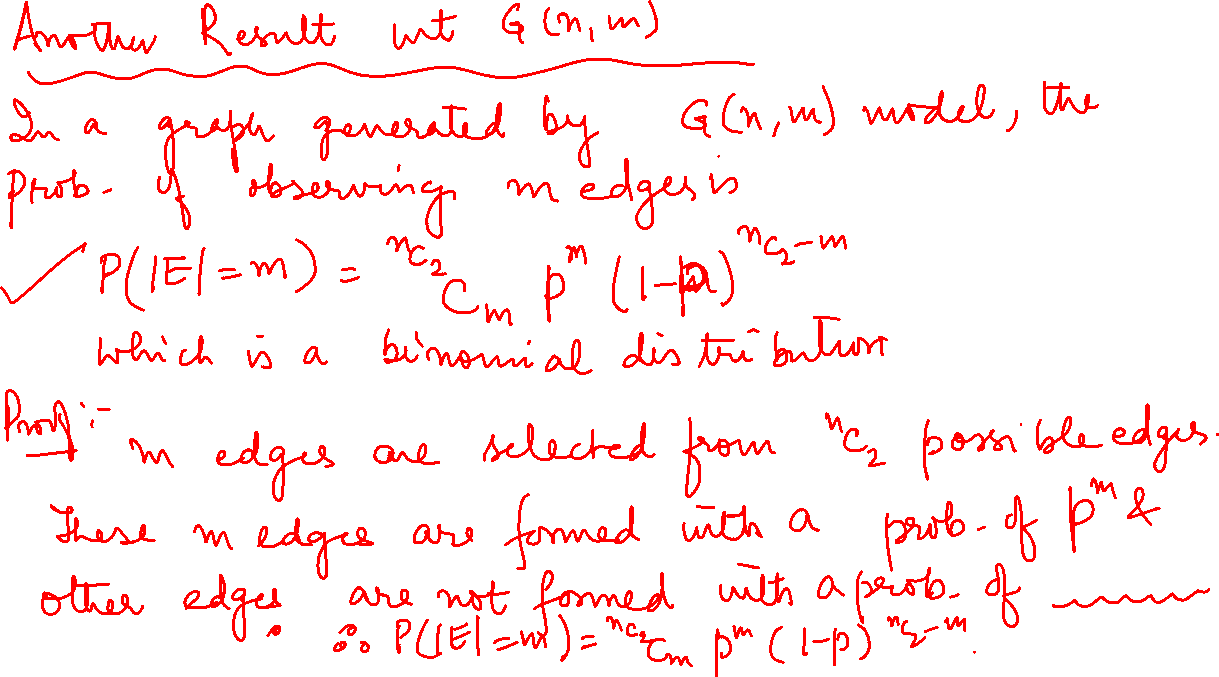 Another Result wrt G(n, m)
In a graph generated by G(n, m) model, the
Prob. of observing m edges is
✓ P(|E| = m) = ⁿC₂Cₘ pᵐ (1-p)ⁿC₂-m
which is a binomial distribution
Proof:-
m edges are selected from ⁿC₂ possible edges.
These m edges are formed with a prob. of pᵐ &
other edges are not formed with a prob. of
∴ P(|E| = m) = ⁿC₂Cₘ pᵐ (1-p)ⁿC₂-m.